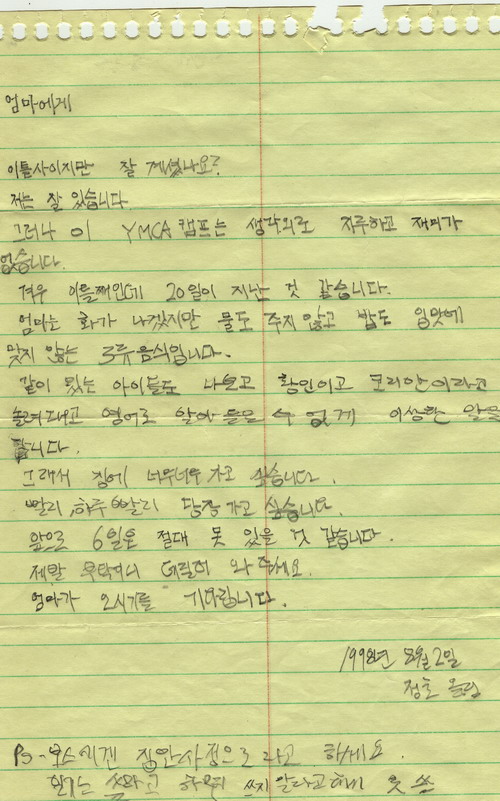 엄마에게
이틀사이지만 잘 계셨나요?
저는 잘 있습니다
그러나 이 YMCA 캠프는 생각외로 지루하고 재미가
없습니다.
겨우 이틀째인데 20일이 지난 것 같습니다.
엄마는 화가 나겠지만 물도 주지 않고 밥도 입맛에
맞지 않는 3류음식입니다.
같이 있는 아이들도 나보고 황인이고 코리안이라고
놀려대고 영어로 알아 들을 수 없게 이상한 말을
합니다.
그래서 집에 너무너무 가고 싶습니다.
빨리, 하루빨리 당장 가고 싶습니다.
앞으로 6일은 절대 못 있을 것 같습니다.
제발 부탁이니 데릴러 와 주세요.
엄마가 오시기를 기다립니다.
1998년 8월 2일
정호 올림
PS- 집안사정으로라고 하세요.
쓰지 말라고해서 못 씀